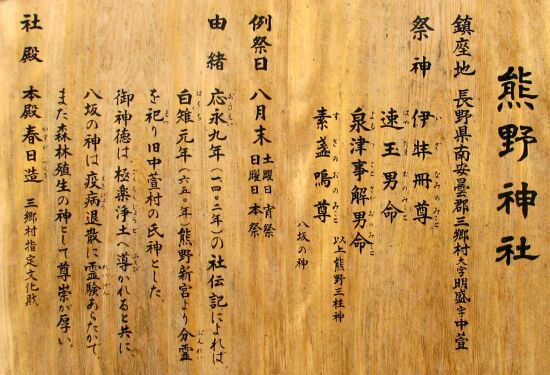 熊野神社
鎮座地 長野県南安曇郡三郷村大字明盛字中萱
祭神 伊弉冊尊
速玉男命
泉津事解男命 以上熊野三柱神
素盞嗚尊 八坂の神
例祭日 八月末 土曜日 宵祭 日曜日 本祭
由緒 応永九年(一四〇二年)の社伝記によれば、
白雉元年(六五〇年)熊野新宮より分霊
を祀り旧中萱村の氏神とした。
御神徳は、極楽浄土へ導かれると共に
八坂の神は疫病退散に霊験あらたかで、
また森林殖生の神として尊崇が厚い。
社殿 本殿春日造 三郷村指定文化財